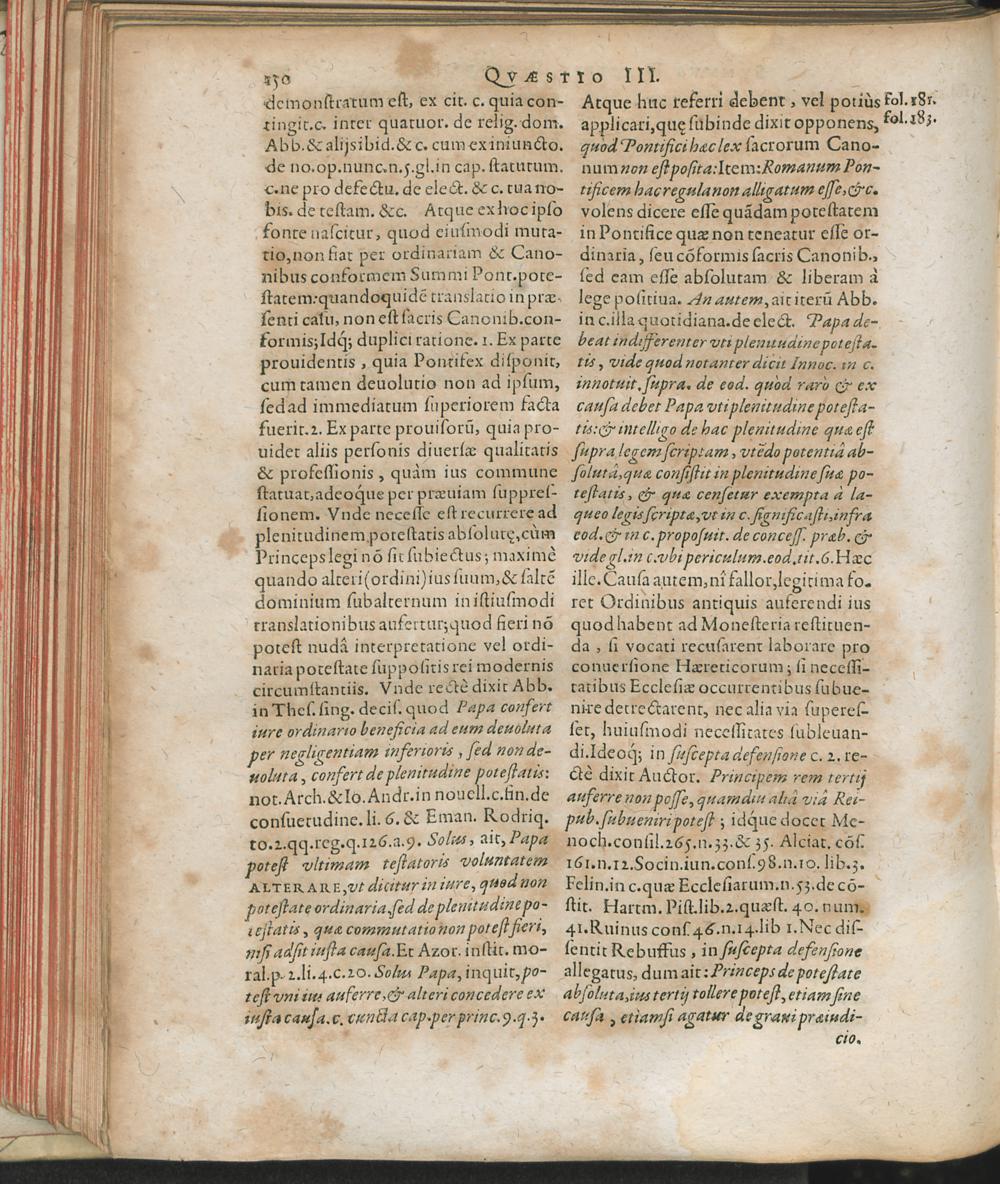 230
QVÆSTIO III.
demonſtratum eſt, ex cit. c. quia con-
tingit.c. inter quatuor. de relig. dom.
Abb. & alijſibid. & c. cum ex iniuncto.
de no.op.nunc.n.5.gl.in cap. ſtatutum.
c.ne pro defectu. de elect. & c. tua no-
bis. de teſtam. &c. Atque ex hoc ipſo
fonte naſcitur, quod eiuſmodi muta-
tio, non fiat per ordinariam & Cano-
nibus conformem Summi Pont. pote-
ſtatem: quandoquidẽ tranſlatio in præ-
ſenti caſu, non eſt ſacris Canonib. con-
formis; Idq́; duplici ratione. 1. Ex parte
prouidentis, quia Pontifex diſponit,
cum tamen deuolutio non ad ipſum,
ſed ad immediatum ſuperiorem facta
fuerit. 2. Ex parte prouiſorũ, quia pro-
uidet aliis perſonis diuerſæ qualitatis
& profeſſionis, quàm ius commune
ſtatuat, adeoq́ue per præuiam ſuppreſ-
ſionem. Vnde neceſſe eſt recurrere ad
plenitudinem poteſtatis abſolutę, cùm
Princeps legi nõ ſit ſubiectus; maximè
quando alteri (ordini) ius ſuum, & ſaltẽ
dominium ſubalternum in iſtiuſmodi
tranſlationibus aufertur; quod fieri nõ
poteſt nudâ interpretatione vel ordi-
naria poteſtate ſuppoſitis rei modernis
circumſtantiis. Vnde rectè dixit Abb.
in Theſ. ſing. deciſ. quod Papa confert
iure ordinario beneficia ad eum deuoluta
per negligentiam inferioris, ſed non de-
uoluta, confert de plenitudine poteſtatis:
not. Arch. & Io. Andr. in nouell. c. fin. de
conſuetudine. li. 6. & Eman. Rodriq.
to. 2. qq. reg. q. 126. a. 9. Solus, ait, Papa
poteſt vltimam teſtatoris voluntatem
ALTERARE, vt dicitur in iure, quod non
poteſtate ordinaria, ſed de plenitudine po-
teſtatis, quæ commutatio non poteſt fieri,
niſi adſit iuſta cauſa. Et Azor. inſtit. mo-
ral. p. 2. li. 4. c. 20. Solus Papa, inquit, po-
teſt vni ius auferre, & alteri concedere ex
iuſta cauſa. c. cuncta cap. per princ. 9. q. 3.
Atque huc referri debent, vel potiùs
applicari, quę ſubinde dixit opponens,
quòd Pontifici hæc lex ſacrorum Cano-
num non eſt poſita: Item: Romanum Pon-
tificem hac regula non alligatum eſſe, &c.
volens dicere eſſe quãdam poteſtatem
in Pontifice quæ non teneatur eſſe or-
dinaria, ſeu cõformis ſacris Canonib.,
ſed eam eſſe abſolutam & liberam à
lege poſitiua. An autem, ait iterũ Abb.
in c. illa quotidiana. de elect. Papa de-
beat indifferenter vti plenitudine poteſta-
tis, vide quod notanter dicit Innoc. in c.
innotuit. ſupra. de eod. quòd rarò & ex
cauſa debet Papa vti plenitudine poteſta-
tis: & intelligo de hac plenitudine quæ eſt
ſupra legem ſcriptam, vtẽdo potentiâ ab-
ſolutâ, quæ conſiſtit in plenitudine ſuæ po-
teſtatis, & quæ cenſetur exempta à la-
queo legis ſcriptæ, vt in c. ſignificaſti, infra
eod. & in c. propoſuit. de conceſſ. præb. &
vide gl. in c. vbi periculum. eod. tit. 6. Hæc
ille. Cauſa autem, nî fallor, legitima fo-
ret Ordinibus antiquis auferendi ius
quod habent ad Monaſteria reſtituen-
da, ſi vocati recuſarent laborare pro
conuerſione Hæreticorum; ſi neceſſi-
tatibus Eccleſiæ occurrentibus ſubue-
nire detrectarent, nec alia via ſupereſ-
ſet, huiuſmodi neceſſitates ſubleuan-
di. Ideoq́; in ſuſcepta defenſione c. 2. re-
ctè dixit Auctor. Principem rem tertij
auferre non poſſe, quamdiu aliâ viâ Rei-
pub. ſubueniri poteſt; idq́ue docet Me-
noch. conſil. 265. n. 33. & 35. Alciat. cõſ.
161. n. 12. Socin. iun. conſ. 98. n. 10. lib. 3.
Felin. in c. quæ Eccleſiarum. n. 53. de cõ-
ſtit. Hartm. Piſt. lib. 2. quæſt. 40. num.
41. Ruinus conſ. 46. n. 14. lib 1. Nec diſ-
ſentit Rebuffus, in ſuſcepta defenſione
allegatus, dum ait: Princeps de poteſtate
abſoluta, ius tertij tollere poteſt, etiam ſine
cauſa, etiamſi agatur de graui præiudi-
cio.
Fol. 181.
fol. 183.